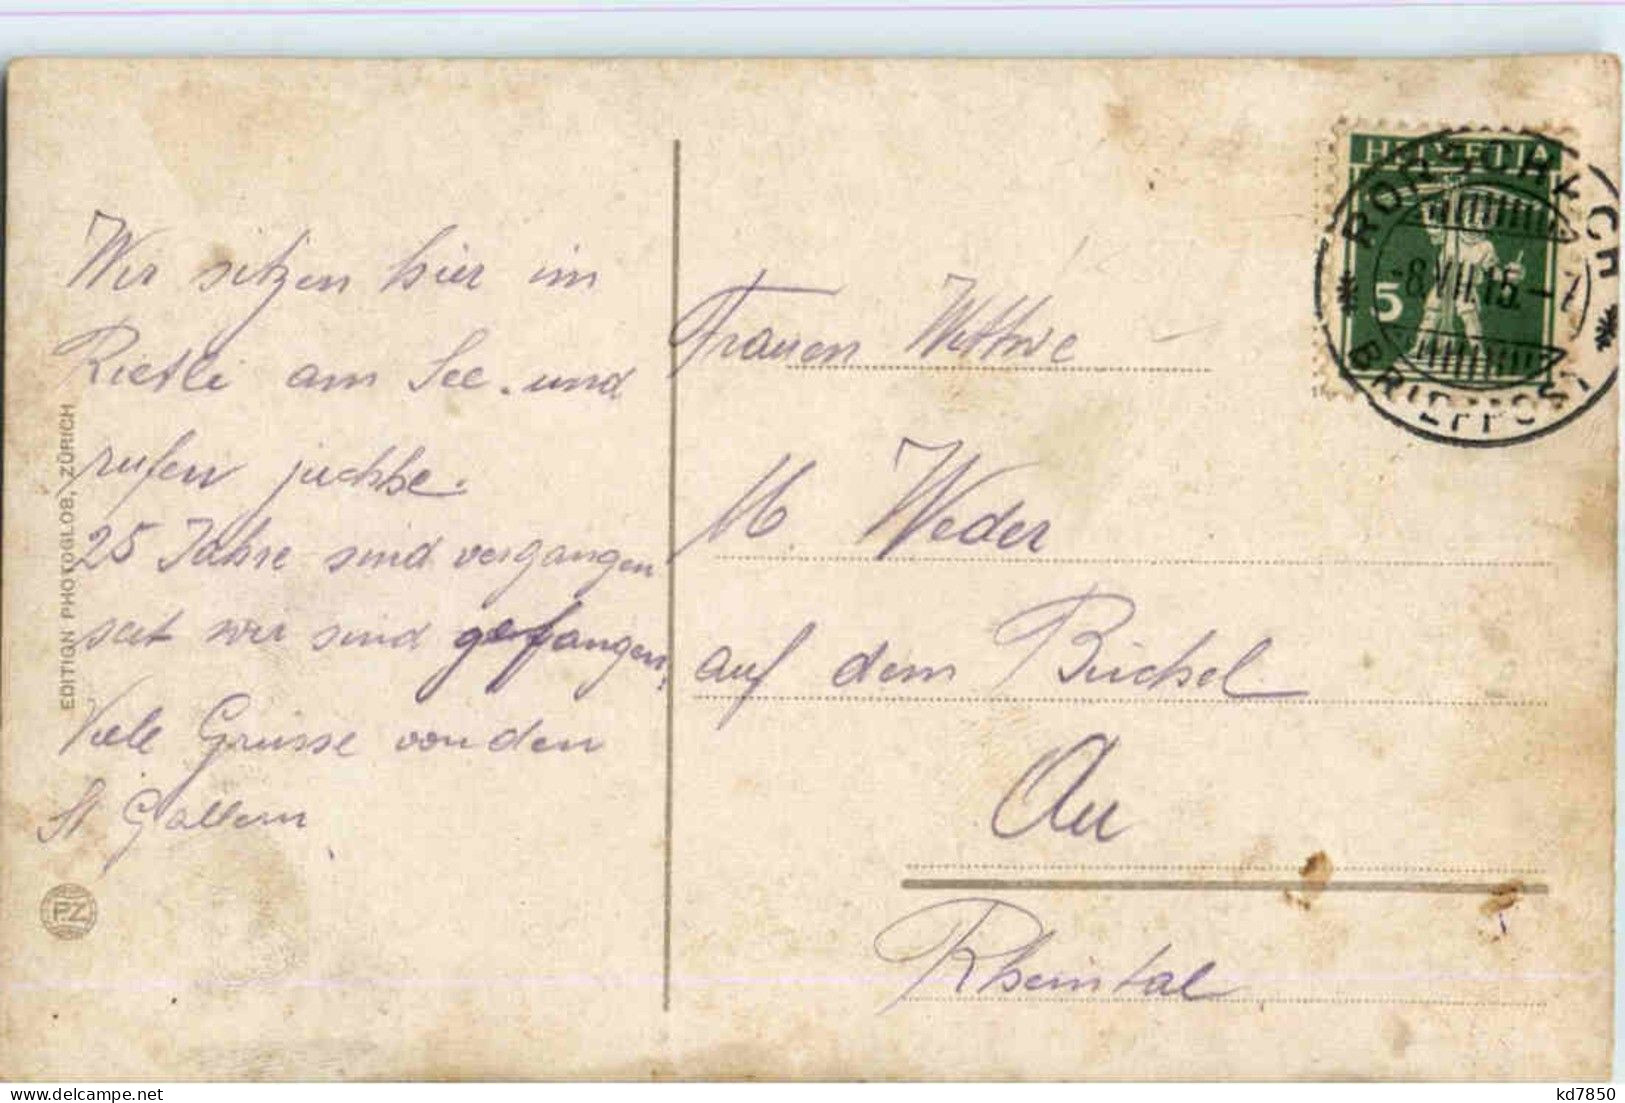 Wir sitzen hier im
Rietli am See. und
rufen juchhe.
25 Jahre sind vergangen
seit wir sind gefangen,
Viele Grüsse von den
St Gallern
EDITION PHOTOGLOB, ZÜRICH
PZ
HELVETIA
5
RORSCHACH
-8.VII.15.-7
BRIEFPOST
Frauen Wittwe
M. Weder
auf dem Büchel
Au
Rheintal
kd7850